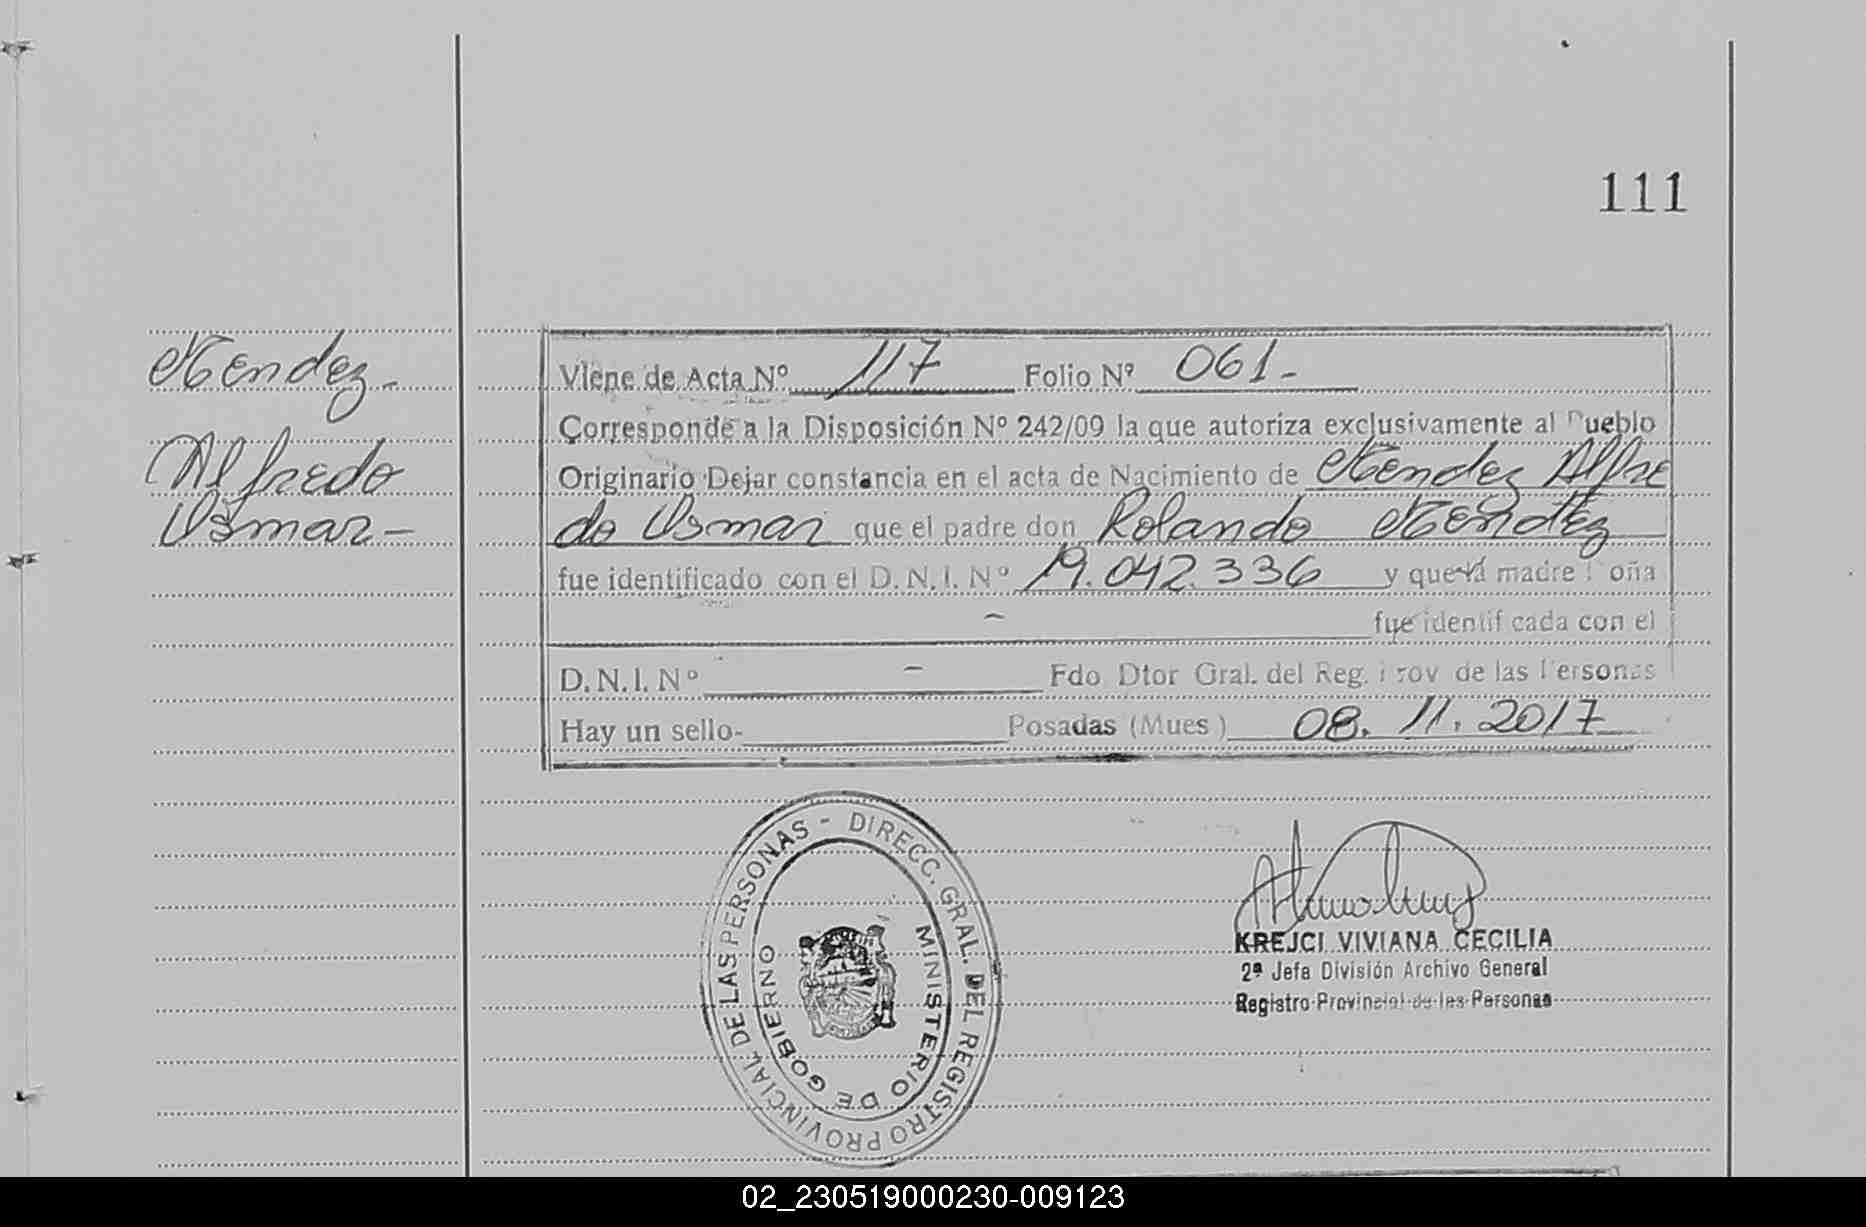 111
Mendez.
Alfredo
Osmar-
Viene de Acta Nº 117 Folio Nº 061-
Corresponde a la Disposición Nº 242/09 la que autoriza exclusivamente al Pueblo
Originario Dejar constancia en el acta de Nacimiento de Mendez Alfre
do Osmar que el padre don Rolando Mendez
fue identificado con el D.N.I. Nº 19.042.336 y que la madre Doña
- fue identificada con el
D.N.I. Nº - Fdo Dtor Gral. del Reg. Prov de las Personas
Hay un sello- Posadas (Mnes) 08.11.2017
DIRECC. GRAL. DEL REGISTRO PROVINCIAL DE LAS PERSONAS -
MINISTERIO DE GOBIERNO
KREJCI VIVIANA CECILIA
2ª Jefa División Archivo General
Registro Provincial de las Personas
02_230519000230-009123